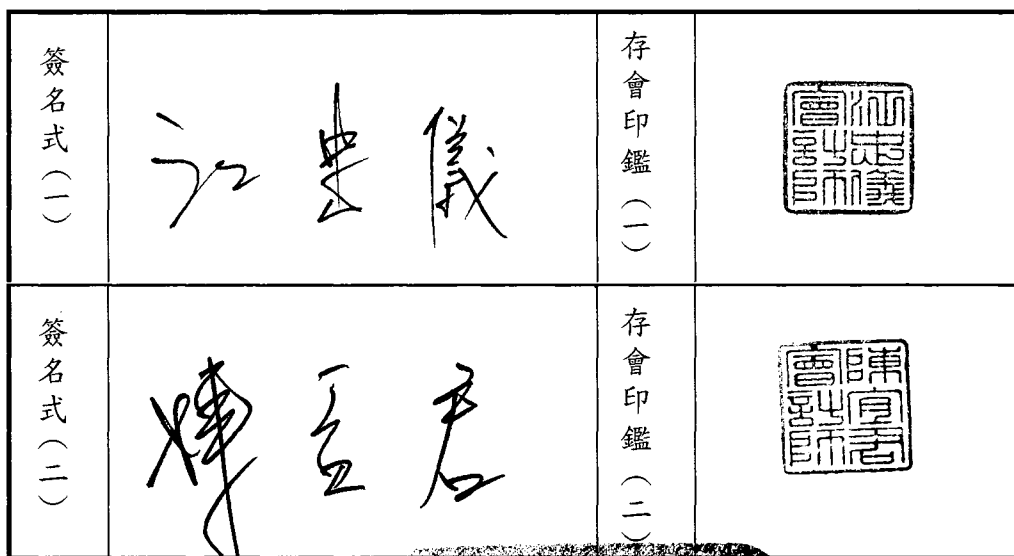 簽名式(一)
江忠儀
存會印鑑(一)
江忠儀會計師
簽名式(二)
陳宜君
存會印鑑(二)
陳宜君會計師